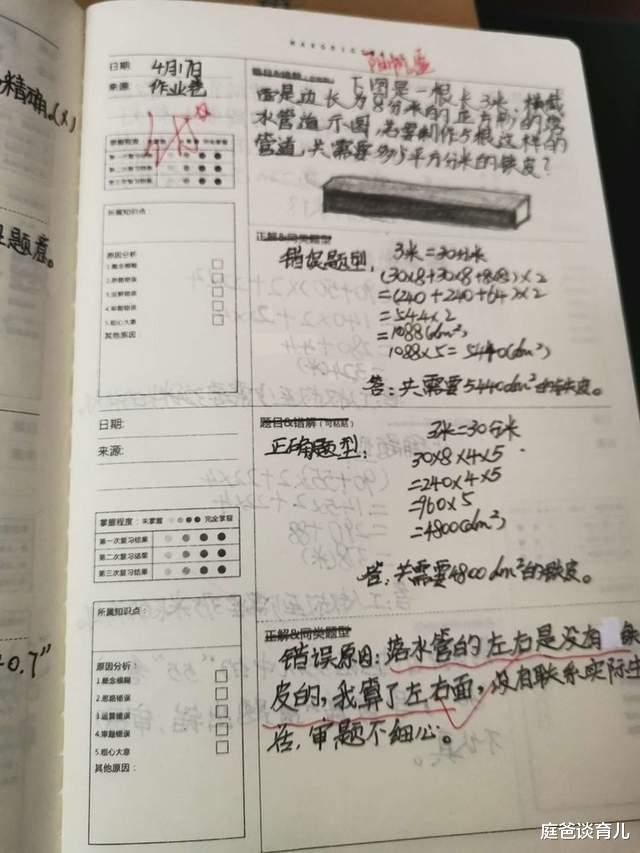 日期: 4月17日
来源 作业卷
下图是一根长3米、横截
面是边长为8分米的正方形的落
水管道示图,若要制作5根这样的
管道,共需要多少平方分米的铁皮?
所属知识点:
原因分析
1.概念模糊
2.思路错误
3.运算错误
4.审题错误
5.粗心大意
其他原因
正解&同类题型
错误题型: 3米=30分米
(30×8+30×8+8×8)×2
=(240+240+64)×2
=544×2
=1088(dm²)
1088×5=5440(dm²)
答:共需要5440dm²的铁皮。
日期:
来源:
掌握程度:未掌握 完全掌握
第一次复习结果
第二次复习结果
第三次复习结果
题目&错解(可粘贴)
正确题型: 3米=30分米
30×8×4×5
=240×4×5
=960×5
=4800(dm²)
答:共需要4800dm²的铁皮。
所属知识点:
原因分析:
1.概念模糊
2.思路错误
3.运算错误
4.审题错误
5.粗心大意
其他原因:
正解&同类题型
错误原因:落水管的左右是没有
皮的,我算了左右面,没有联系实际生
活,审题不细心。
精确
题意。
0.7"
庭爸谈育儿